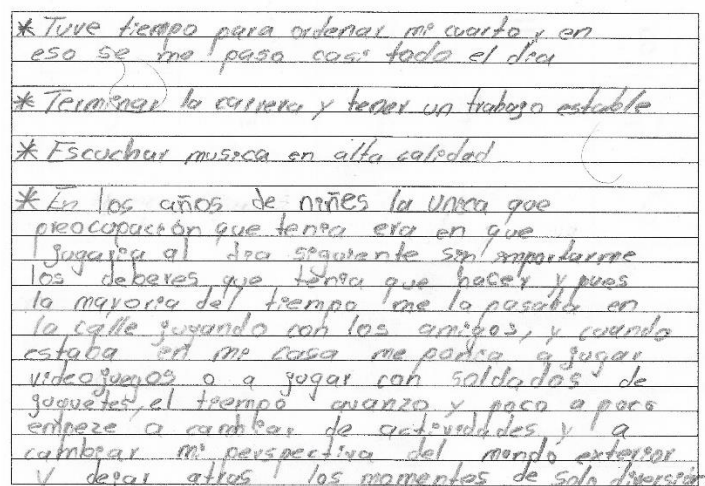 * Tuve tiempo para ordenar mi cuarto y en
eso se me paso casi todo el dia
* Terminar la carrera y tener un trabajo estable
* Escuchar musica en alta calidad
* En los años de niñes la unica que
preocupación que tenia era en que
jugaria al dia siguiente sin importarme
los deberes que tenia que hacer y pues
la mayoria del tiempo me la pasaba en
la calle jugando con los amigos, y cuando
estaba en mi casa me ponia a jugar
videojuegos o a jugar con soldados de
juguetes, el tiempo avanzo y poco a poco
empeze a cambiar de actividades y a
cambiar mi perspectiva del mundo exterior
y dejar atras los momentos de solo diversión